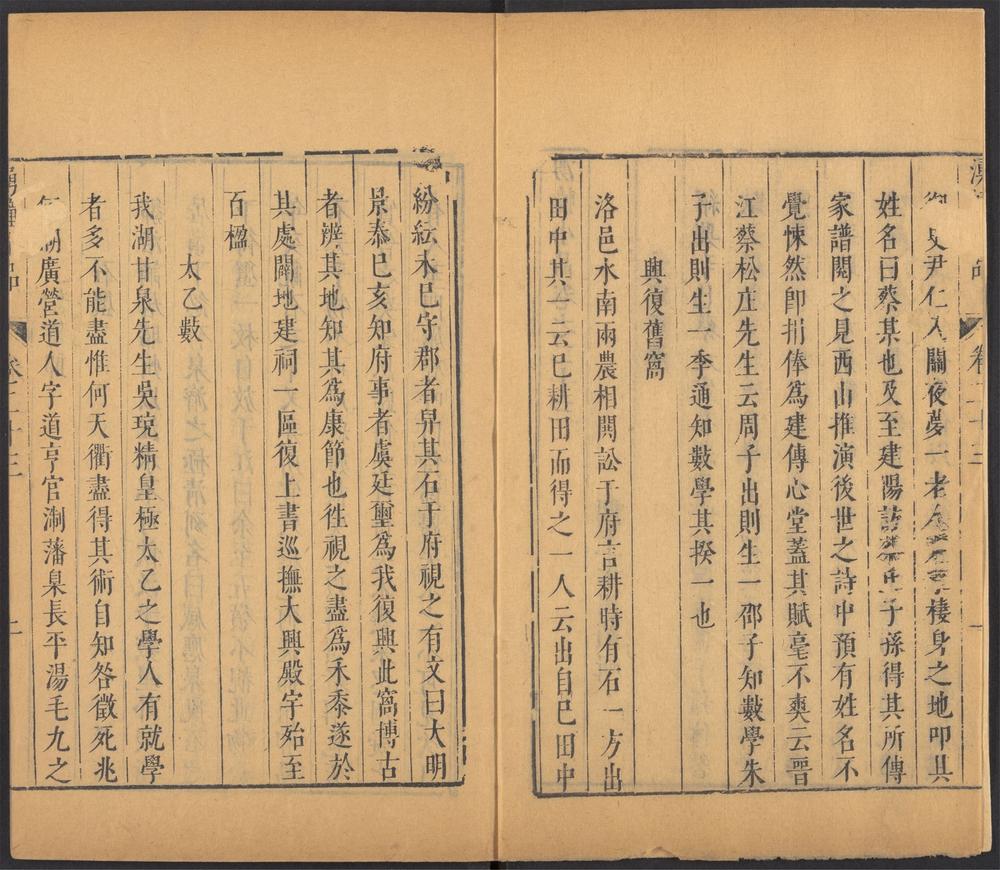 卷二十三
一
史尹仁入關夜夢一老棲身之地叩其
姓名曰蔡某也及至建陽訪蔡氏子孫得其所傳
家譜閱之見西山推演後世之詩中預有姓名不
覺悚然卽捐俸爲建傳心堂蓋其賦毫不爽云晋
江蔡松庄先生云周子出則生一邵子知數學朱
子出則生一季通知數學其揆一也
興復舊窩
洛邑水南兩農相鬨訟于府言耕時有石一方出
田中其一云已耕田而得之一人云出自已田中
紛紜未已守郡者舁其石于府視之有文曰大明
景泰已亥知府事者虞廷璽爲我復興此窩博古
者辨其地知其爲康節也徃視之盡爲禾黍遂於
其處闢地建祠一區復上書巡撫大興殿宇殆至
百楹
太乙數
我湖甘泉先生吳珫精皇極太乙之學人有就學
者多不能盡惟何天衢盡得其術自知咎徵死兆
湖廣營道人字道亨官淛藩臬長平湯毛九之
卷二十三
二